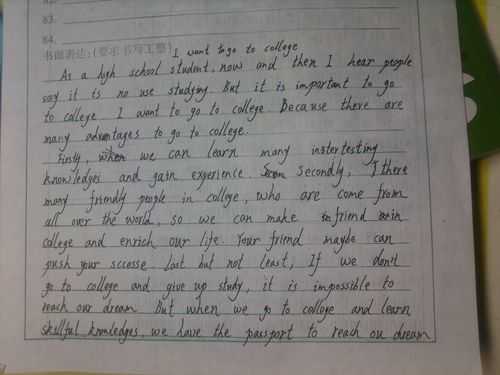 83.
84.
书面表达:(要求书写工整) I want to go to college
As a high school student, now and then I hear people
say it is no use studying But it is important to go
to college I want to go to college Because there are
many advantages to go to college.
Firstly, when we can learn many instertesting
knowledges and gain experience Secondly, I there
many friendly people in college, who are come from
all over the world, so we can make friend in
college and enrich our life Your friend maybe can
push your sccesse Last but not least, If we don't
go to college and give up study, it is impossible to
reach our dream But when we go to college and learn
skillful knowledges, we have the passport to reach ou dream